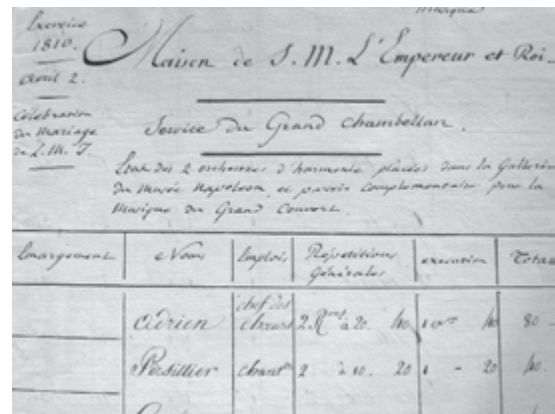 Musique
Exercice
1810.
Avril 2.
Célébration
du Mariage
de L. M. I.
Maison de S. M. L'Empereur et Roi
Service du Grand Chambellan.
Etat des 2 orchestres d'harmonie placées dans la Gallerie
du Musée Napoleon, et parvis complementaire pour la
Musique du Grand Couvert.
Emargement Noms Emplois Répétitions Générales execution Totaux
Adrien chef des chœurs 2 Rons à 20. 40 1 on 40 80
Persillier chantr 2 à 10. 20 1 - 20 40.